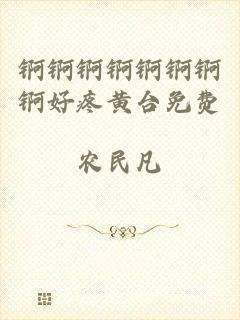 锕锕锕锕锕锕锕
锕好疼黄台免费
农民凡